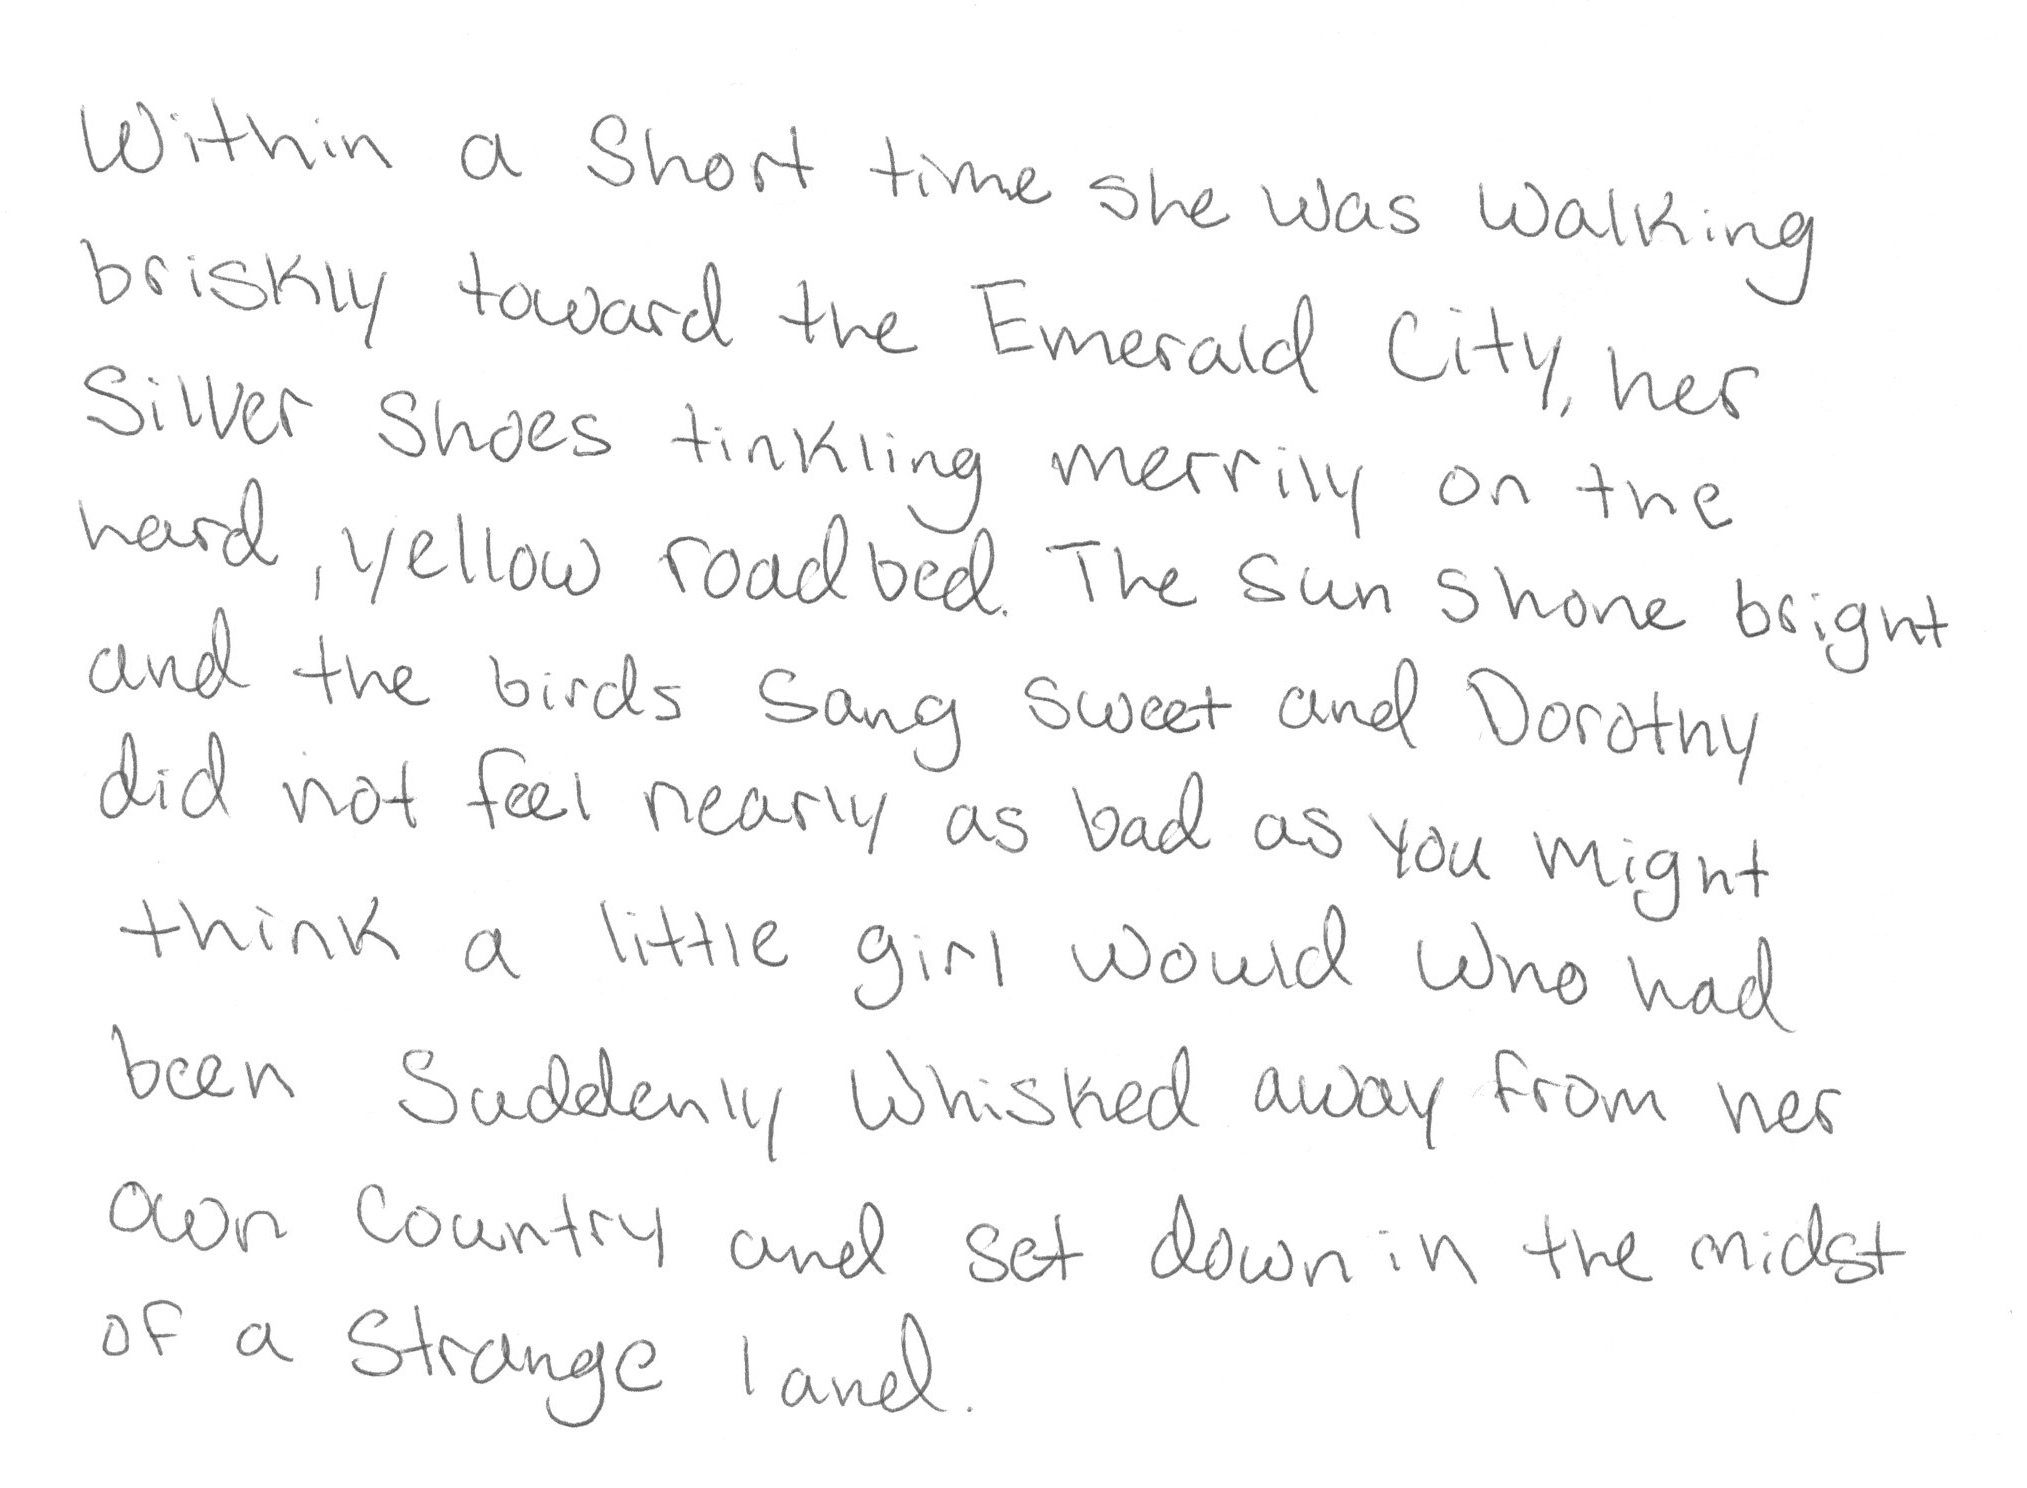 Within a short time she was walking
briskly toward the Emerald City, her
Silver Shoes tinkling merrily on the
hard, yellow roadbed. The sun shone bright
and the birds sang sweet and Dorothy
did not feel nearly as bad as you might
think a little girl would who had
been suddenly whisked away from her
own country and set down in the midst
of a strange land.